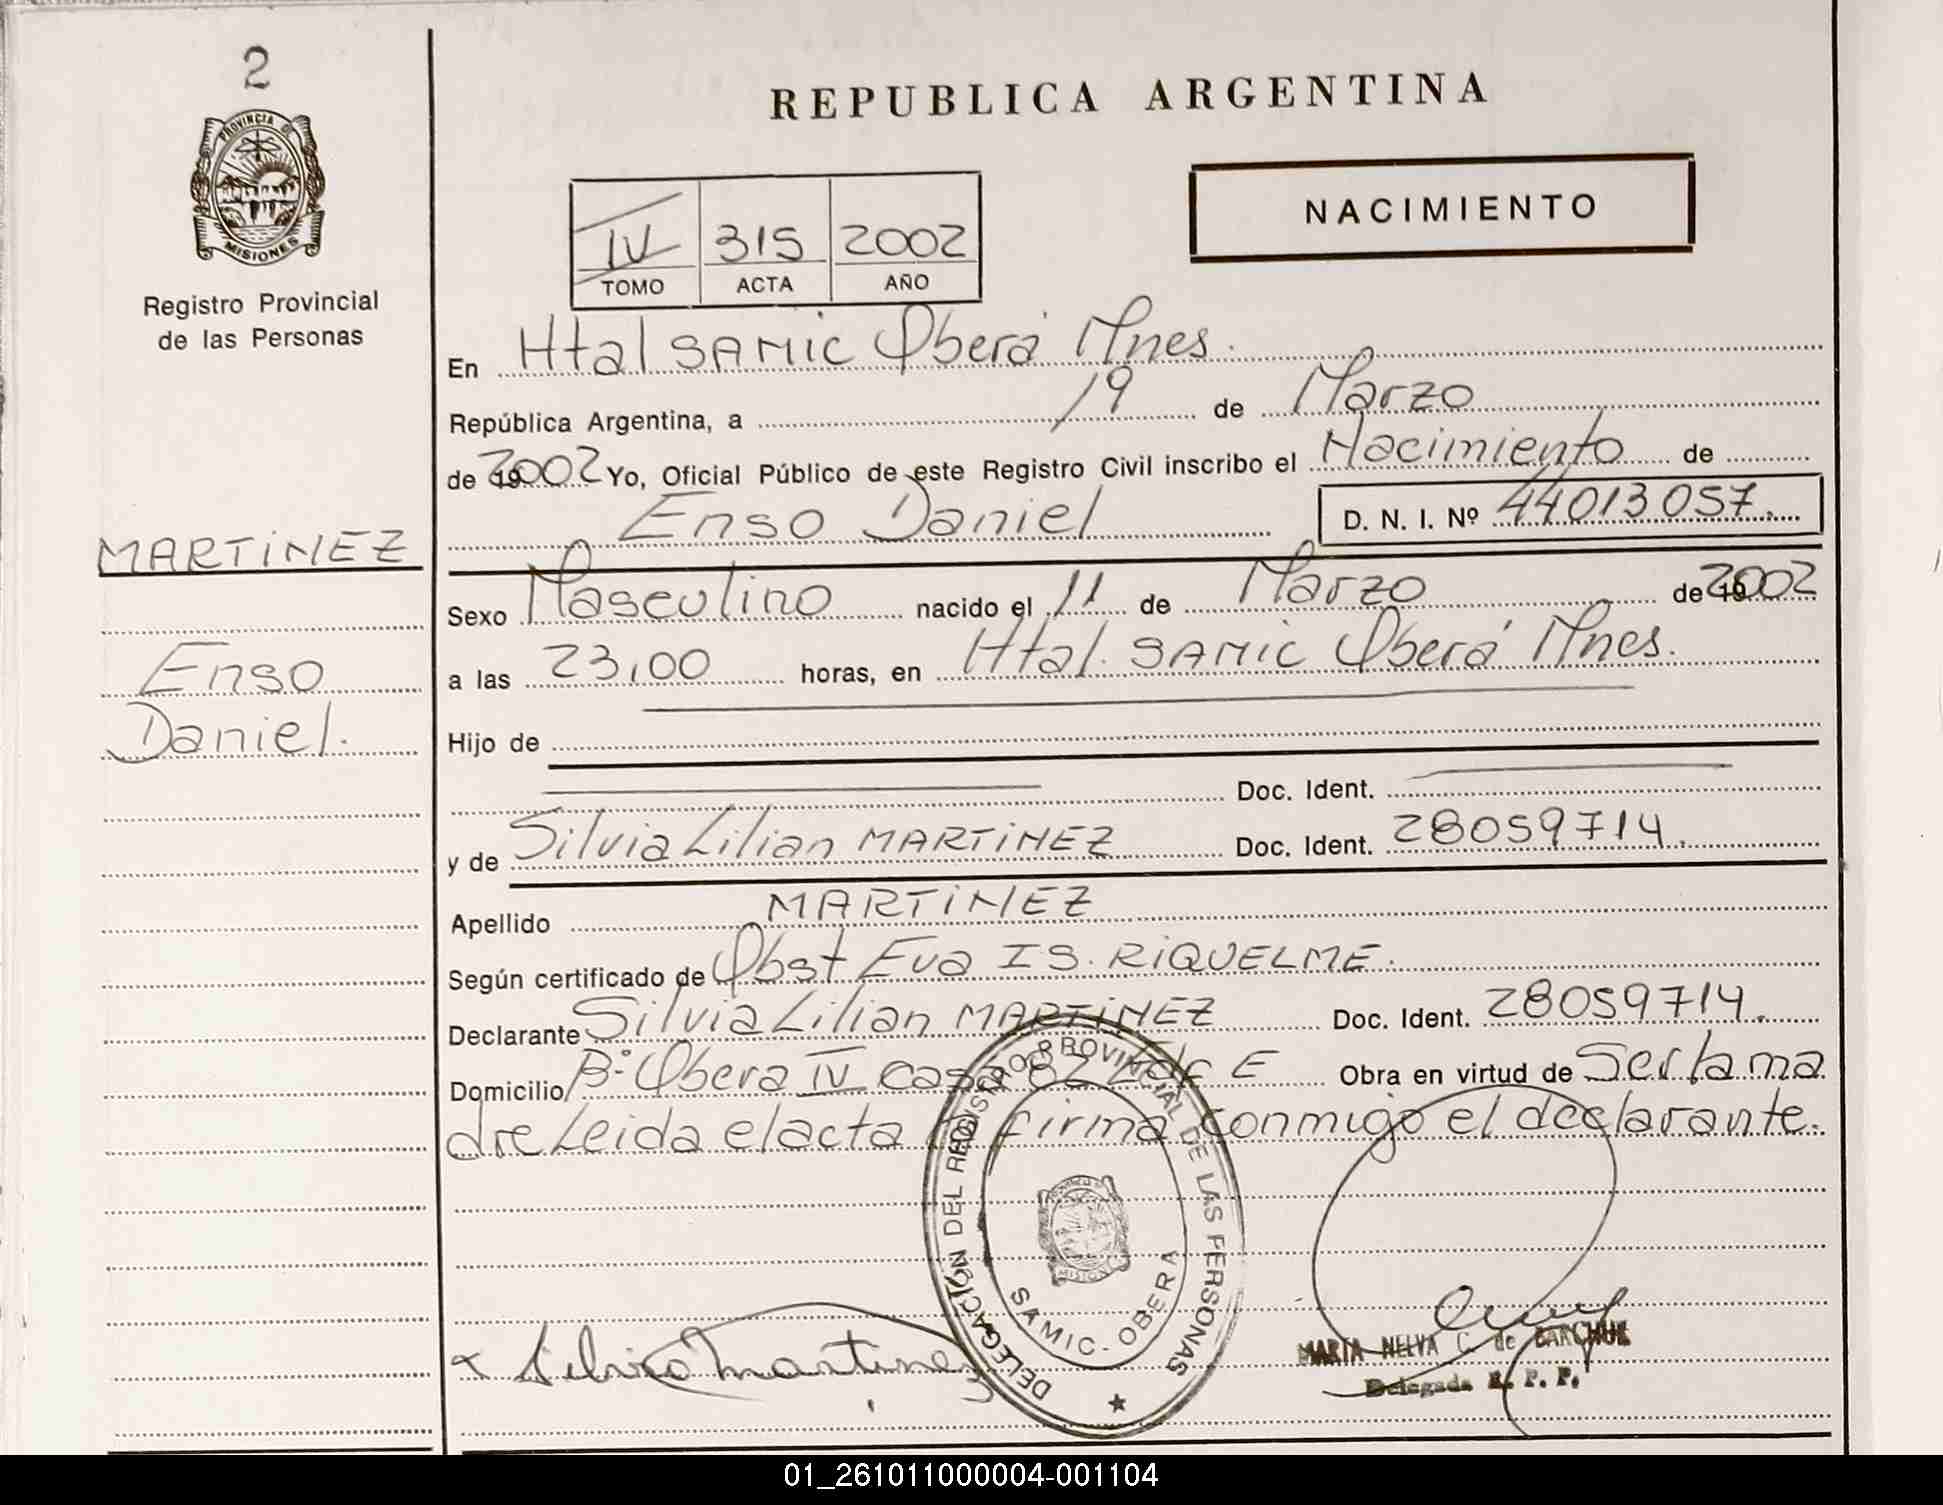 2
PROVINCIA DE
MISIONES
Registro Provincial
de las Personas
MARTINEZ
Enso
Daniel.
REPUBLICA ARGENTINA
IV 315 2002
TOMO ACTA AÑO
NACIMIENTO
En Htal SAMIC Oberá Mnes.
República Argentina, a 19 de Marzo
de 2002 Yo, Oficial Público de este Registro Civil inscribo el Nacimiento de
Enso Daniel D. N. I. Nº 44013057.
Sexo Masculino nacido el 11 de Marzo de 2002
a las 23,00 horas, en Htal. SAMIC Oberá Mnes.
Hijo de
Doc. Ident.
y de Silvia Lilian MARTINEZ Doc. Ident. 28059714.
Apellido MARTINEZ
Según certificado de Obst Eva IS. RIQUELME.
Declarante Silvia Lilian MARTINEZ Doc. Ident. 28059714.
Domicilio Bº Oberá IV casa 82 E Obra en virtud de Ser la ma
dre Leida el acta la firma conmigo el declarante.
DELEGACIÓN DEL REGISTRO PROVINCIAL DE LAS PERSONAS
SAMIC - OBERA
Silvia Martinez
MARIA NELVA C. de BARCHUK
Delegada R. P. P.
01_261011000004-001104